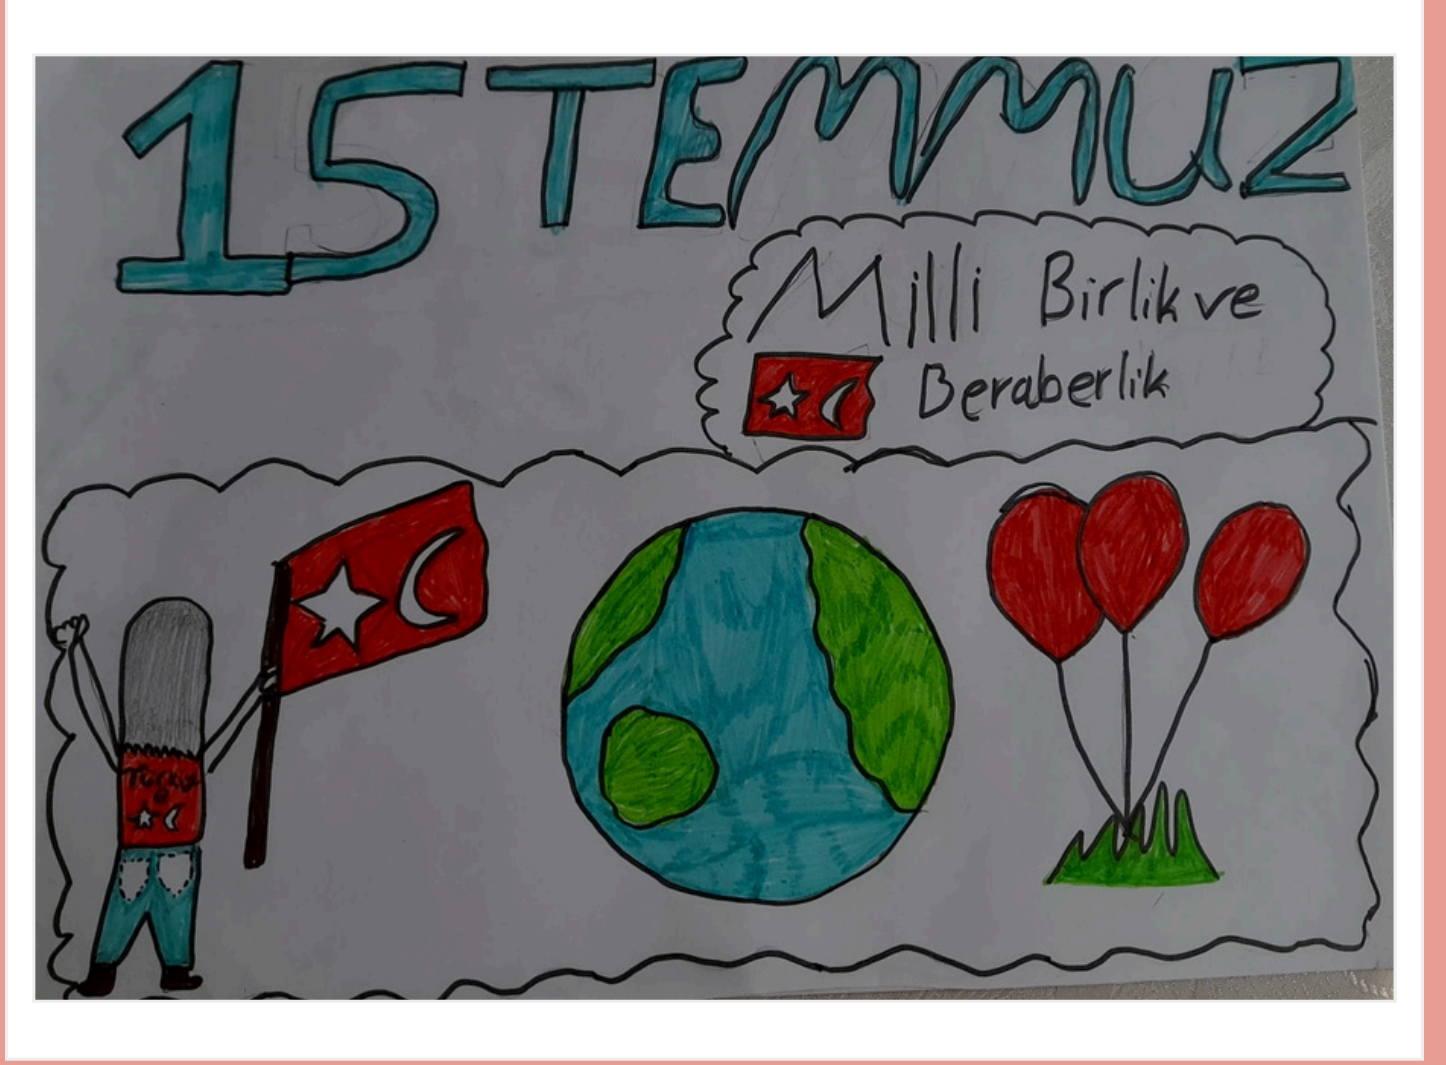 15 TEMMUZ
Milli Birlik ve
Beraberlik